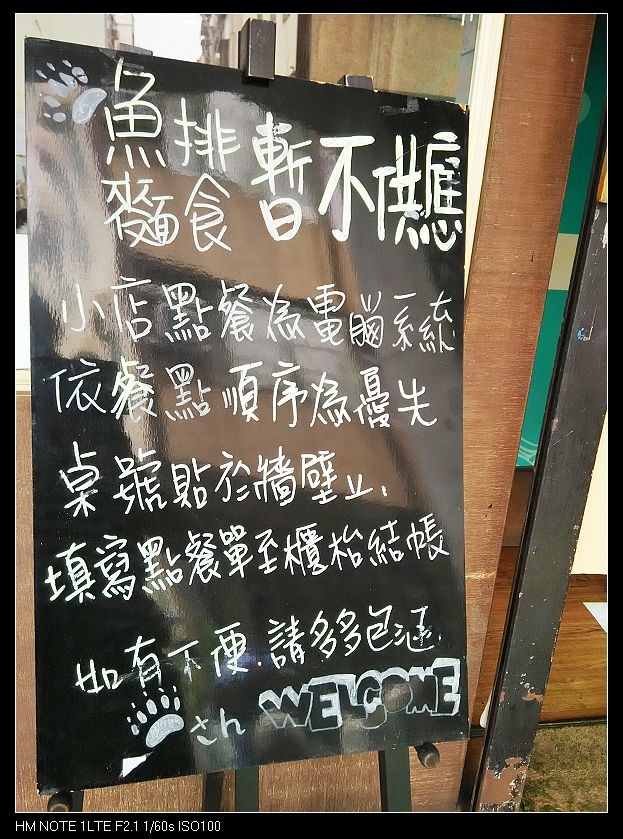 魚排
麵食
暫不供應
小店點餐為電腦系統
依餐點順序為優先
桌號貼於牆壁上,
填寫點餐單至櫃枱結帳
如有不便,請多多包涵
さん WELCOME
HM NOTE 1LTE F2.1 1/60s ISO100